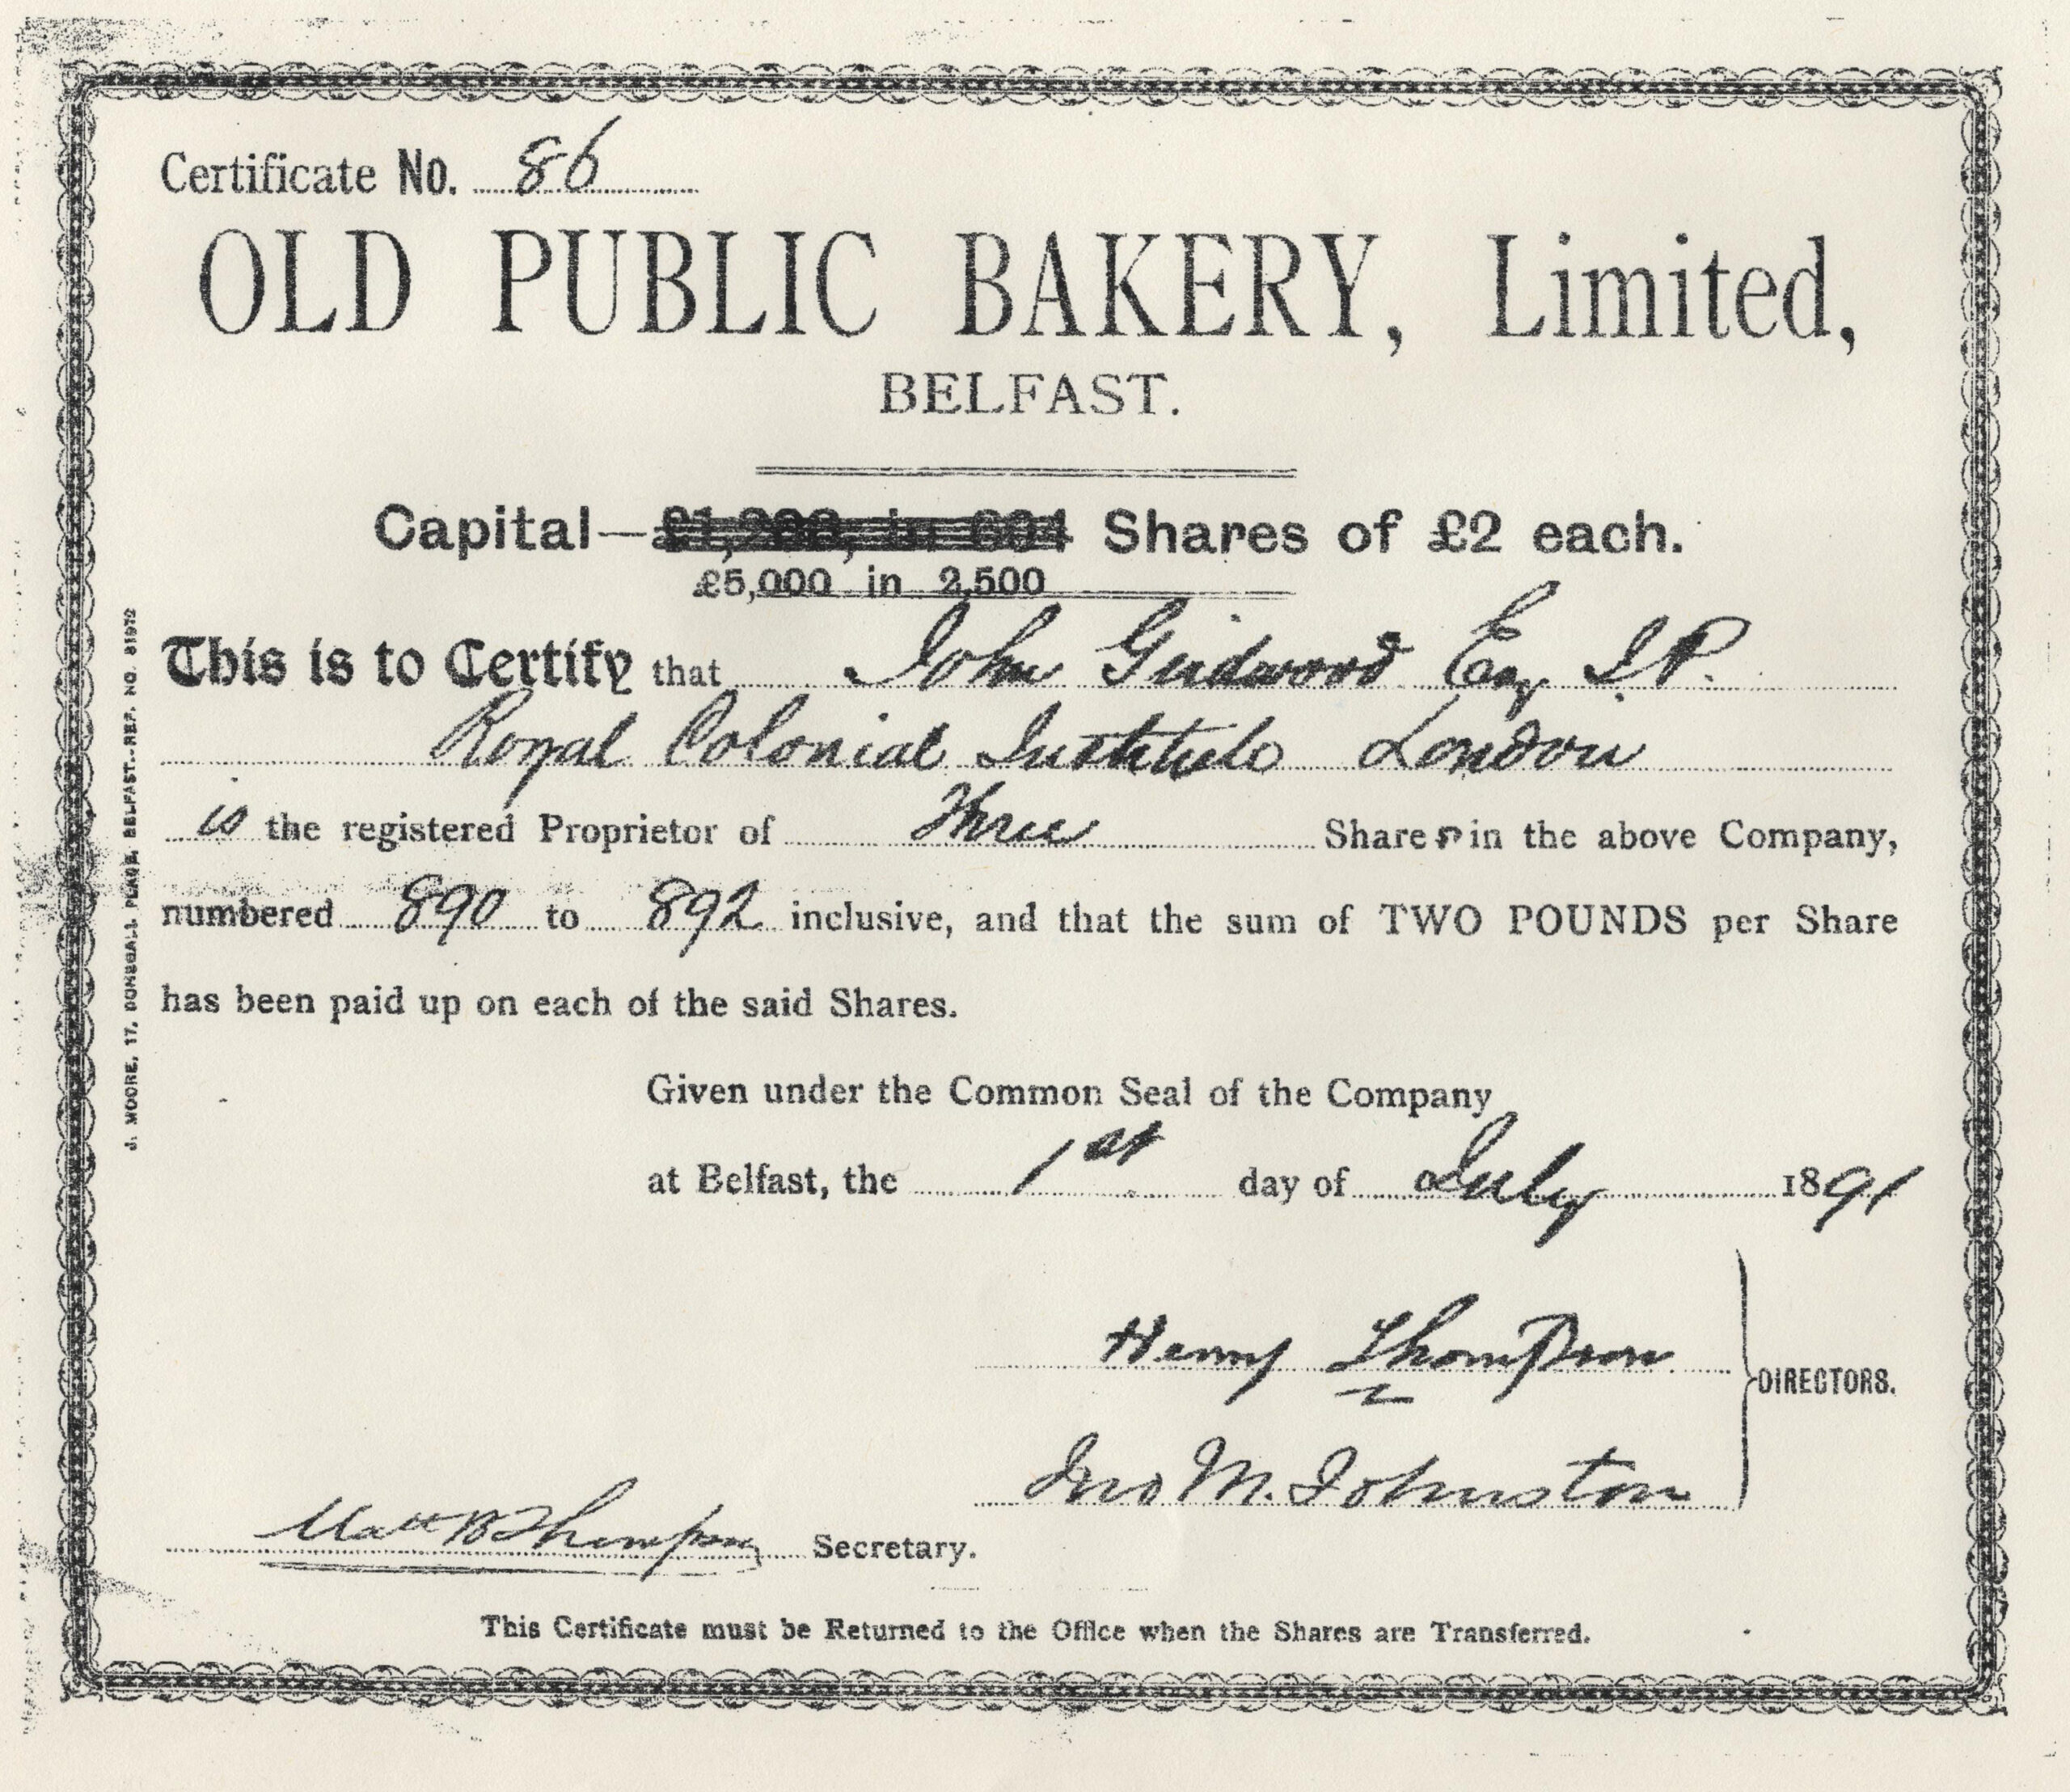 Certificate No. 86
OLD PUBLIC BAKERY, Limited,
BELFAST.
Capital— Shares of £2 each.
£5,000 in 2,500
This is to Certify that John Girdwood Esq J.P.
Royal Colonial Institute London
is the registered Proprietor of Three Shares in the above Company,
numbered 890 to 892 inclusive, and that the sum of TWO POUNDS per Share
has been paid up on each of the said Shares.
Given under the Common Seal of the Company
at Belfast, the 1st day of July 1891
Henry Thompson
DIRECTORS.
Jno M. Johnston
Matt W Thompson Secretary.
This Certificate must be Returned to the Office when the Shares are Transferred.
J. MOORE, 17, DONEGALL PLACE, BELFAST.—REF. NO. 81972